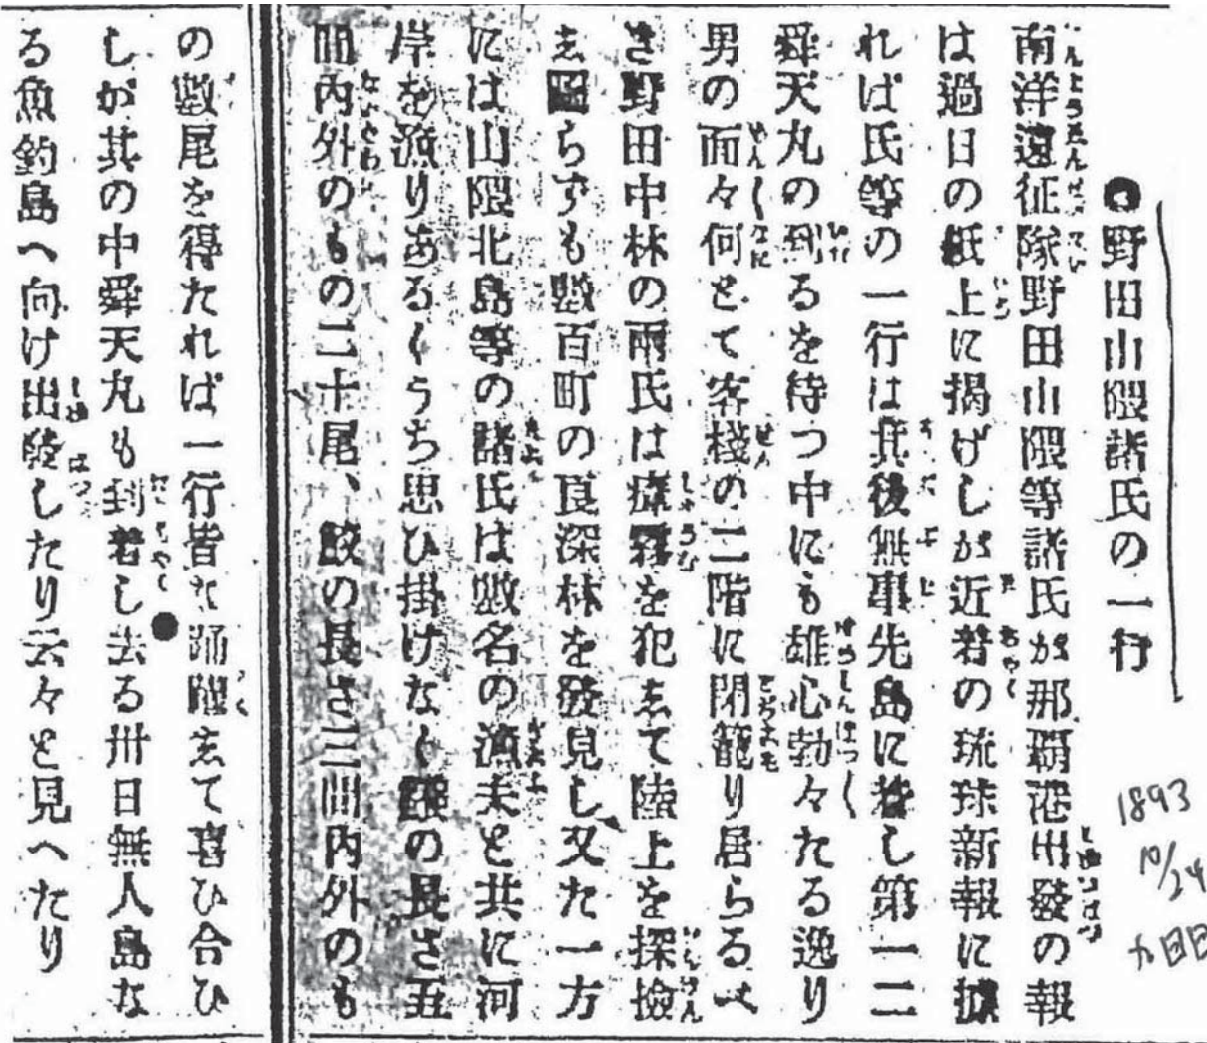 ●野田山隈諸氏の一行
南洋遠征隊野田山隈等諸氏が那覇港出發の報
は過日の紙上に揭げしが近着の琉球新報に據
れば氏等の一行は其後無事先島に着し第一二
舜天丸の到るを待つ中にも雄心勃々たる逸り
男の面々何とて客棧の二階に閉籠り居らるべ
き野田中林の兩氏は瘴霧を犯して陸上を探撿
し圖らずも數百町の良深林を發見し又た一方
には山隈北島等の諸氏は數名の漁夫と共に河
岸を漁りあるくうち思ひ掛けなく の長さ五
間內外のもの二十尾、鮫の長さ三間內外のも
の數尾を得たれば一行皆な踊躍して喜ひ合ひ
しが其の中舜天丸も到着し去る卅日無人島な
る魚釣島へ向け出 したり云々と見へたり
1893
10/24
九日日